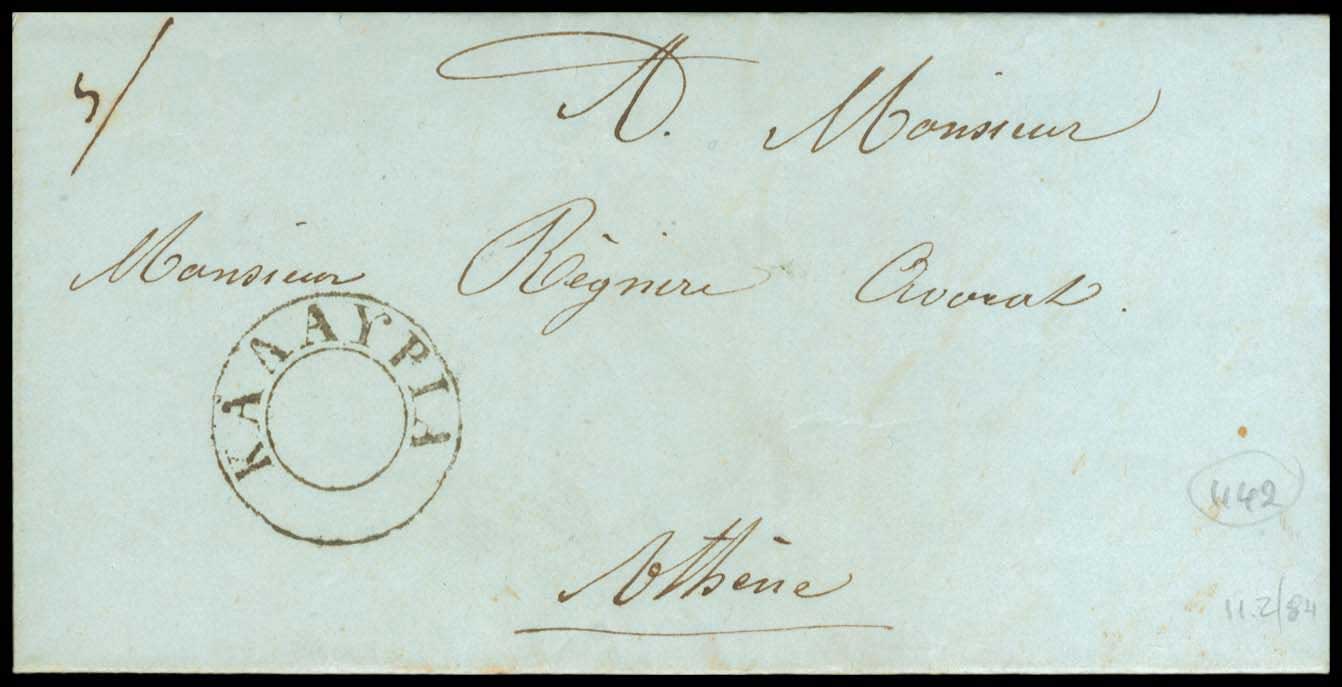 A. Monsieur
Monsieur Règnere Avocat.
ΚΑΛΑΥΡΙΑ
Athène
442
11.2/84